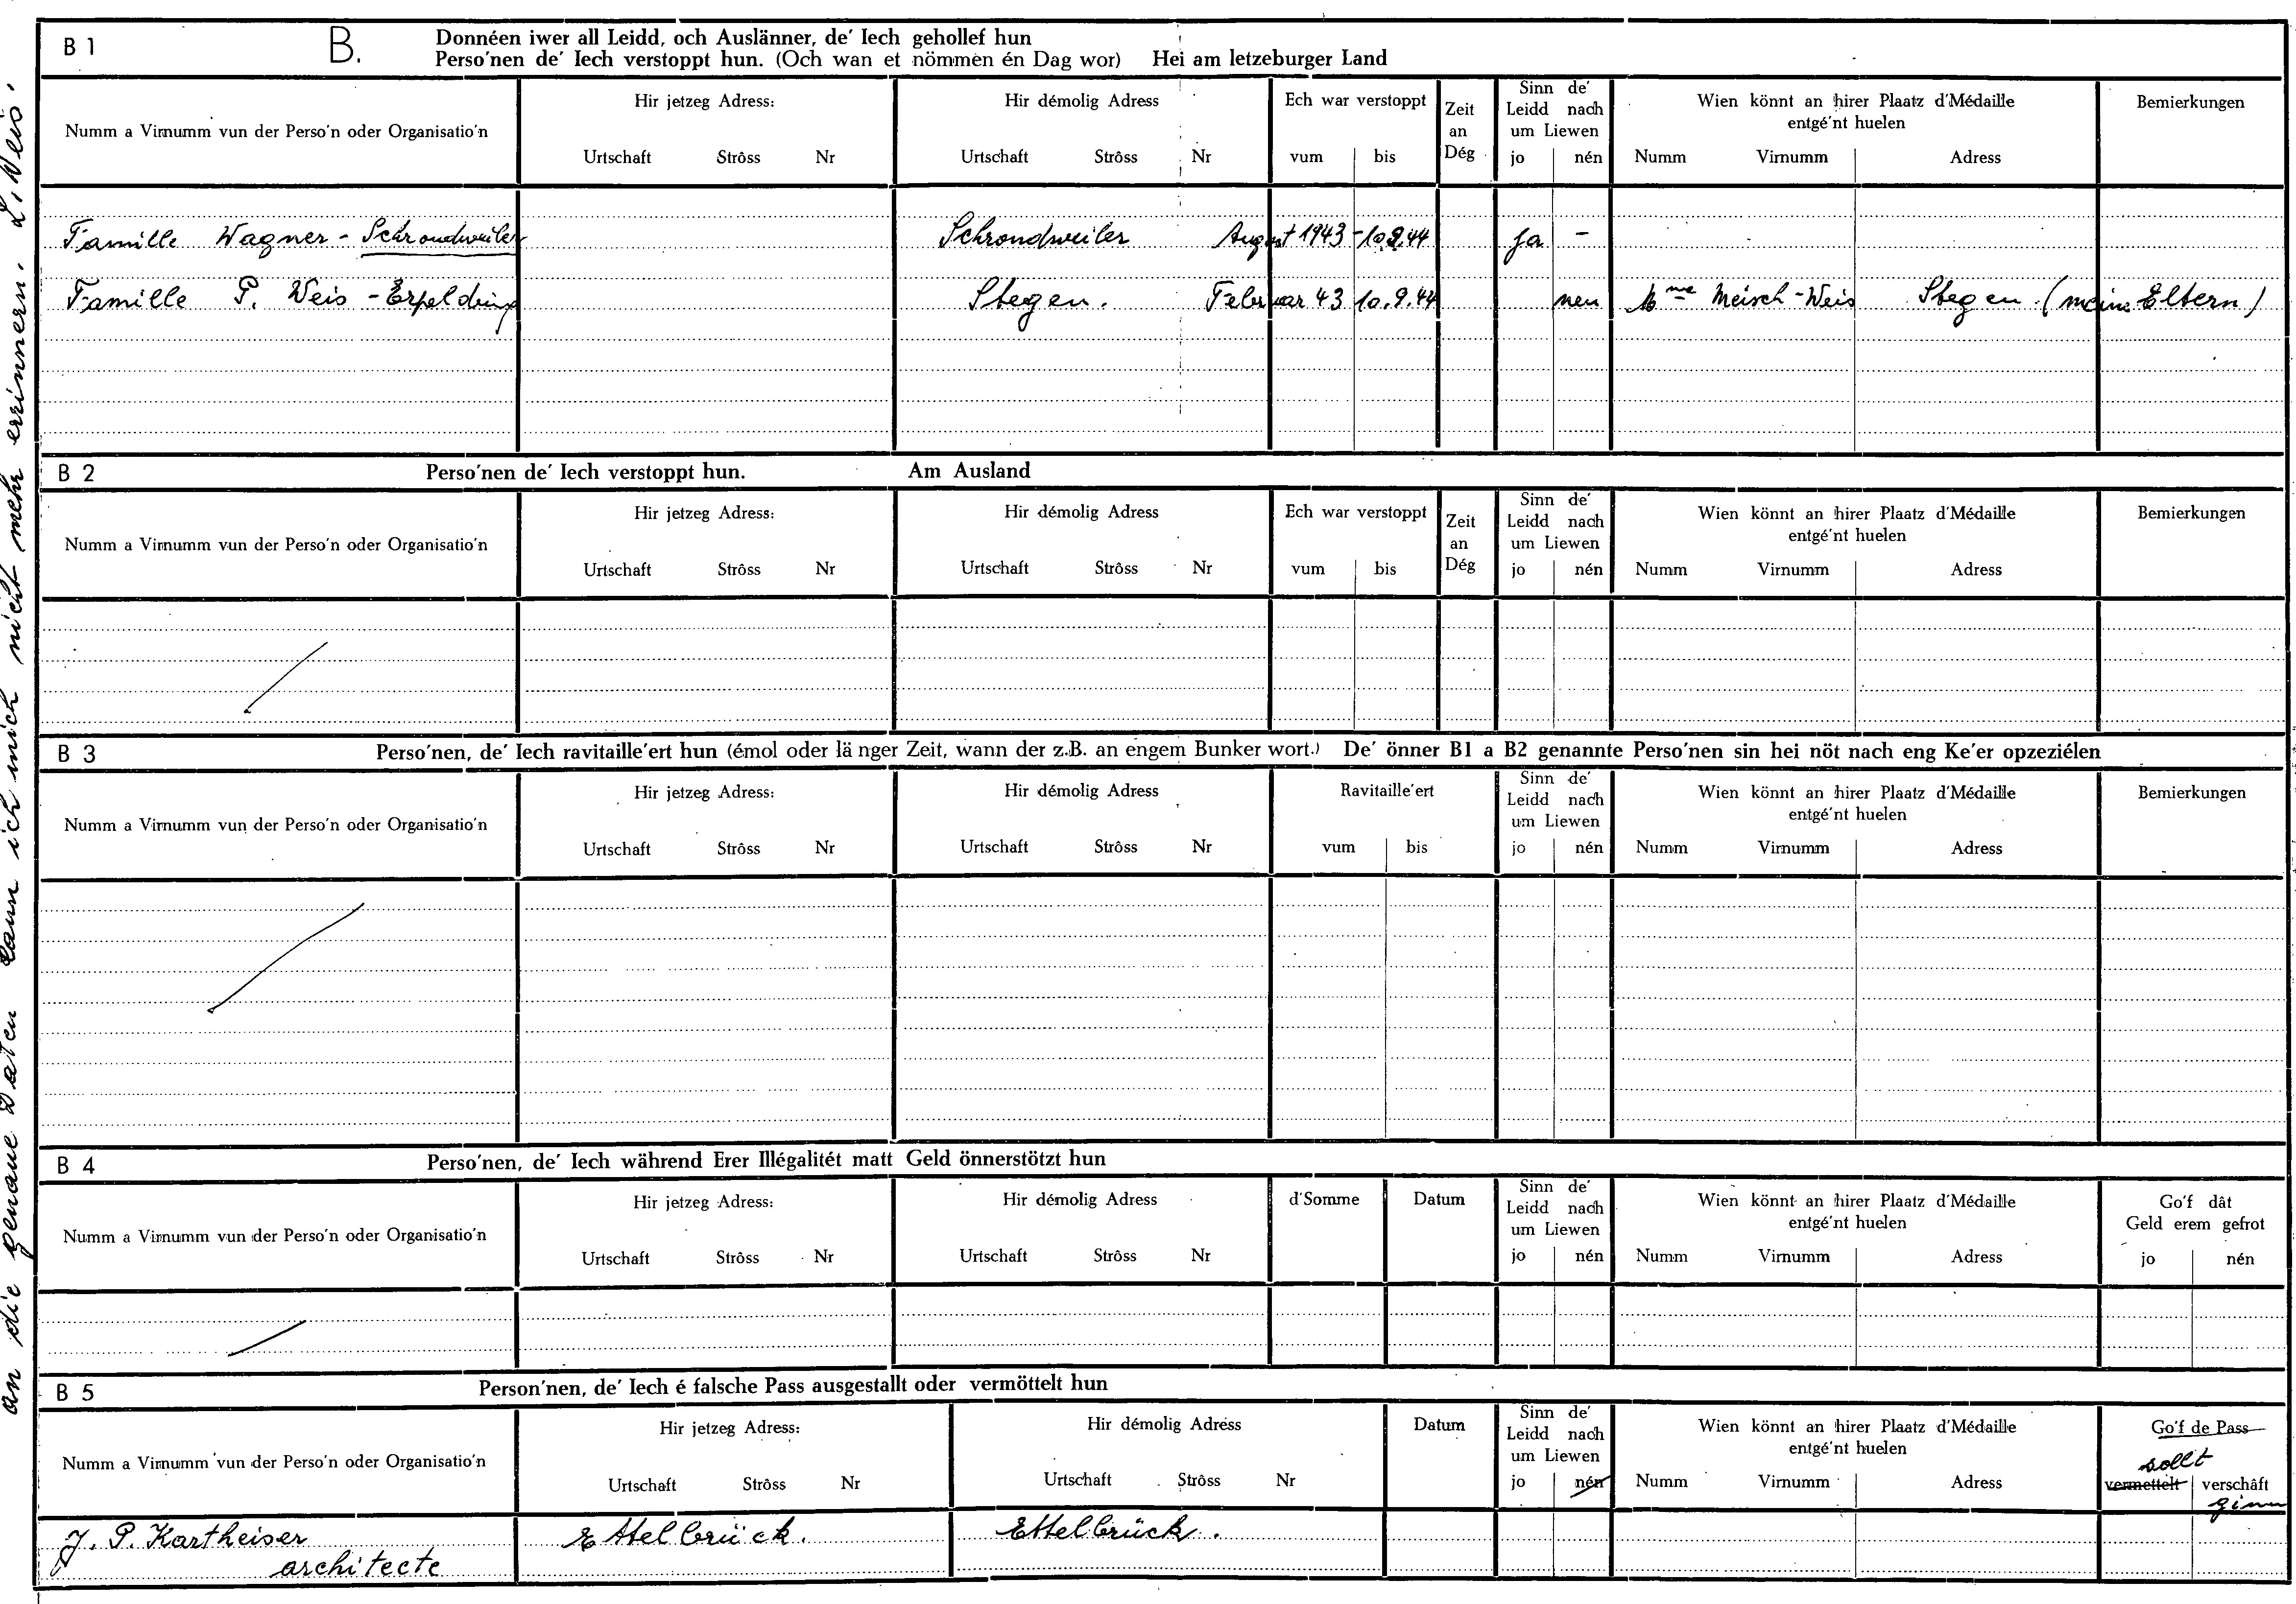 B 1
B.
Donnéen iwer all Leidd, och Auslänner, de' Iech gehollef hun
Perso'nen de' Iech verstoppt hun. (Och wan et nömmen én Dag wor) Hei am letzeburger Land
Numm a Virnumm vun der Perso'n oder Organisatio'n
Hir jetzeg Adress:
Urtschaft Strôss Nr
Hir démolig Adress
Urtschaft Strôss Nr
Ech war verstoppt
vum bis
Zeit
an
Dég
Sinn de'
Leidd nach
um Liewen
jo nén
Wien könnt an hirer Plaatz d'Médaille
entgé'nt huelen
Numm Virnumm Adress
Bemierkungen
Famille Wagner - Schrondweiler Schrondweiler August 1943 - 10.9.44 ja -
Famille P. Weis - Erpelding Stegen. Februar 43 10.9.44 nen Mme Meisch-Weis Stegen (meine Eltern)
B 2
Perso'nen de' Iech verstoppt hun. Am Ausland
Numm a Virnumm vun der Perso'n oder Organisatio'n
Hir jetzeg Adress:
Urtschaft Strôss Nr
Hir démolig Adress
Urtschaft Strôss Nr
Ech war verstoppt
vum bis
Zeit
an
Dég
Sinn de'
Leidd nach
um Liewen
jo nén
Wien könnt an hirer Plaatz d'Médaille
entgé'nt huelen
Numm Virnumm Adress
Bemierkungen
B 3
Perso'nen, de' Iech ravitaille'ert hun (émol oder länger Zeit, wann der z.B. an engem Bunker wort.) De' önner B1 a B2 genannte Perso'nen sin hei nöt nach eng Ke'er opzeziélen
Numm a Virnumm vun der Perso'n oder Organisatio'n
Hir jetzeg Adress:
Urtschaft Strôss Nr
Hir démolig Adress
Urtschaft Strôss Nr
Ravitaille'ert
vum bis
Sinn de'
Leidd nach
um Liewen
jo nén
Wien könnt an hirer Plaatz d'Médaille
entgé'nt huelen
Numm Virnumm Adress
Bemierkungen
B 4
Perso'nen, de' Iech während Erer Illégalitét matt Geld önnerstötzt hun
Numm a Virnumm vun der Perso'n oder Organisatio'n
Hir jetzeg Adress:
Urtschaft Strôss Nr
Hir démolig Adress
Urtschaft Strôss Nr
d'Somme
Datum
Sinn de'
Leidd nach
um Liewen
jo nén
Wien könnt an hirer Plaatz d'Médaille
entgé'nt huelen
Numm Virnumm Adress
Go'f dât
Geld erem gefrot
jo nén
B 5
Person'nen, de' Iech é falsche Pass ausgestallt oder vermöttelt hun
Numm a Virnumm vun der Perso'n oder Organisatio'n
Hir jetzeg Adress:
Urtschaft Strôss Nr
Hir démolig Adress
Urtschaft Strôss Nr
Datum
Sinn de'
Leidd nach
um Liewen
jo nén
Wien könnt an hirer Plaatz d'Médaille
entgé'nt huelen
Numm Virnumm Adress
Go'f de Pass
sollt
vermettelt verschâft
ginn
J. P. Kartheiser Ettelbrück. Ettelbrück.
architecte
an die genaue Daten kann ich mich nicht mehr erinnern. L. Weis.